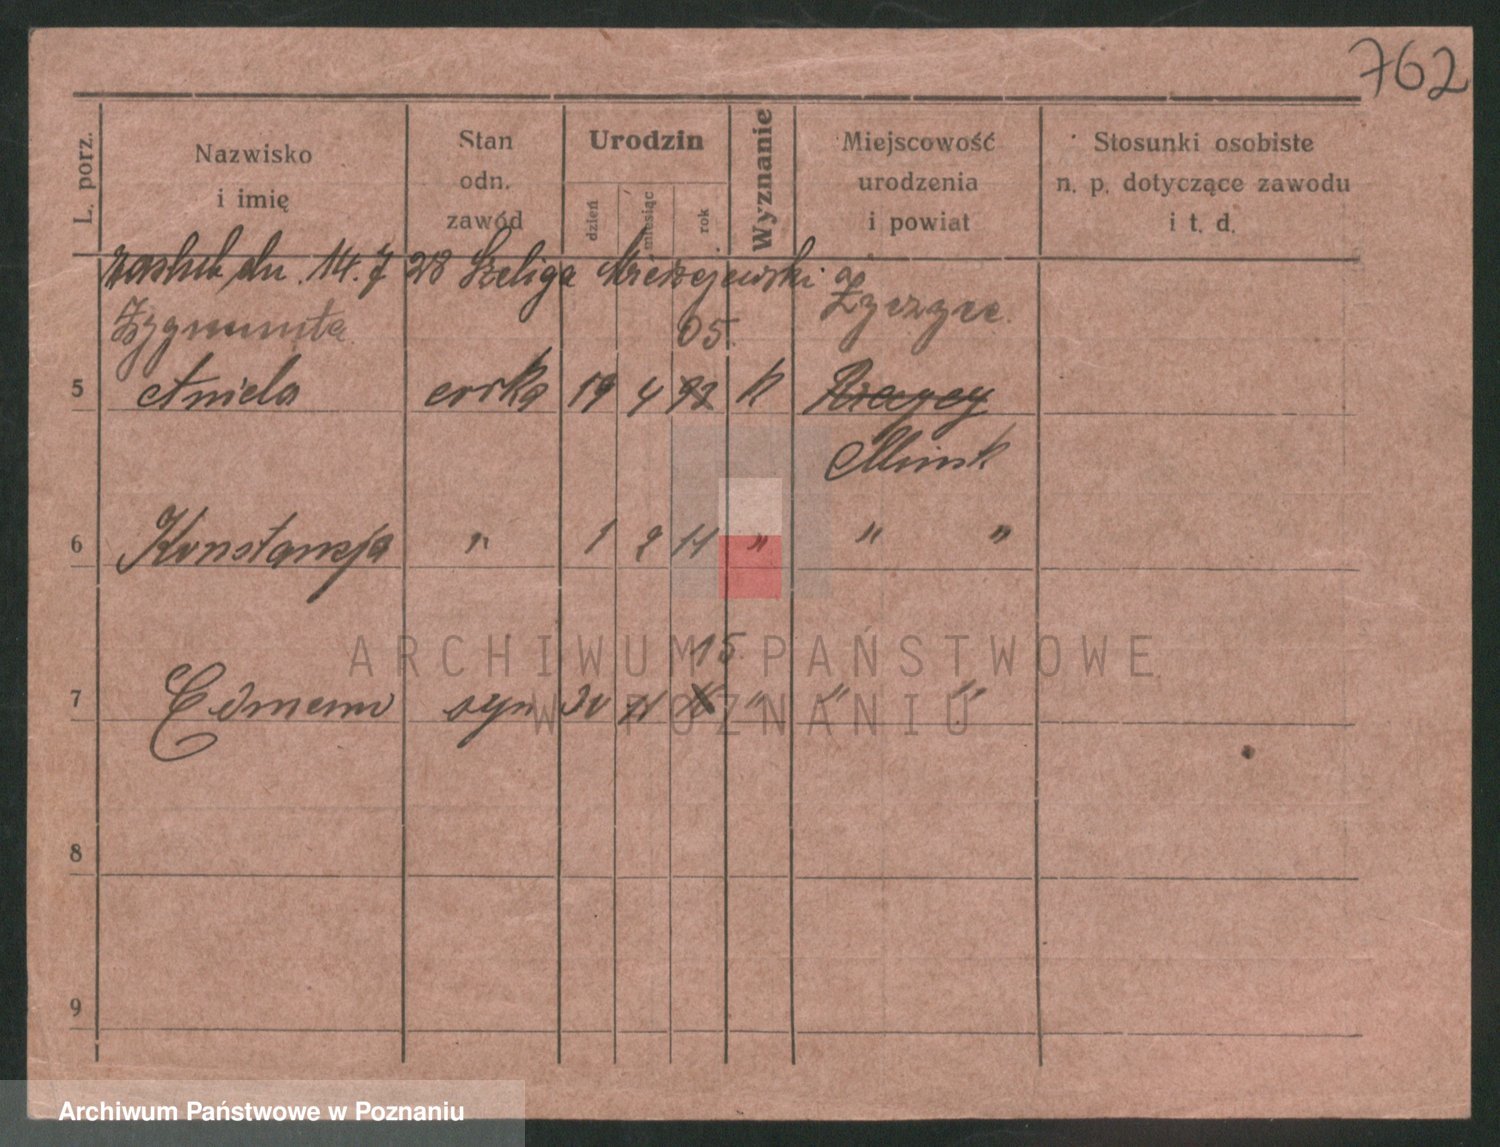 762
L. porz.
Nazwisko
i imię
Stan
odn.
zawód
Urodzin
dzień
miesiąc
rok
Wyznanie
Miejscowość
urodzenia
i powiat
Stosunki osobiste
n. p. dotyczące zawodu
i t. d.
zaslub. dn. 14. 7 28 Szeliga Mierzejewski
Zygmunta
05.
5 Aniela corka 19 4 k
Minsk
6 Konstancja " 1 2 11 " " "
15
7 Edmund syn 30 11 16 " " "
8
9
ARCHIWUM PAŃSTWOWE
W POZNANIU
Archiwum Państwowe w Poznaniu